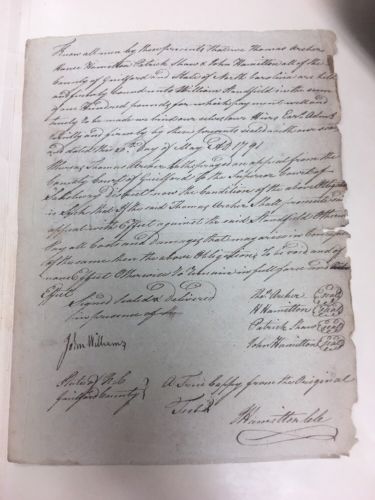 Know all men by these presents that we Thomas Archer
Hance Hamilton Patrick Shaw & John Hamilton all of the
County of Guilford and State of North Carolina are held
and firmly bound unto William Standfield in the sum
of one Hundred pounds for which payment well and
truly to be made we bind our selves our Heirs Exrs Admrs
Jointly and firmly by these presents sealed with our seals
and dated the day of May AD 1791
Whereas Thomas Archer hath prayed an appeal from the
County Court of Guilford to the Superior Court of
Salisbury District now the Condition of the above Obligation
is Such that if the said Thomas Archer Shall prosecute
appeal with Effect against the said Standfield
pay all Costs and damages that may
of the same then the above Obligation to be void and of
none Effect Otherwise to remain in full force and
Effect
Signed Sealed & Delivered
in presence of
Thos Archer (Seal)
H Hamilton (Seal)
Patrick Shaw (Seal)
John Hamilton (Seal)
John Williams
State of N. C
Guilford County
A True Coppy from the Original
Test
Hamilton Clk